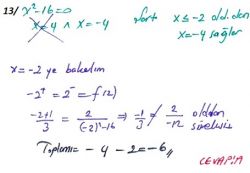 13/ x²-16=0 şart x≤-2 old.dan
x=4 ∧ x=-4 x=-4 sağlar
x=-2 ye bakalım
-2⁺ = 2⁻ = f(2)
-2+1/3 = 2/(-2)²-16 ⇒ -1/3 ≠ 2/-12 olduğundan süreksiz
Toplamı = -4 -2 = -6,,
CEVAP: A